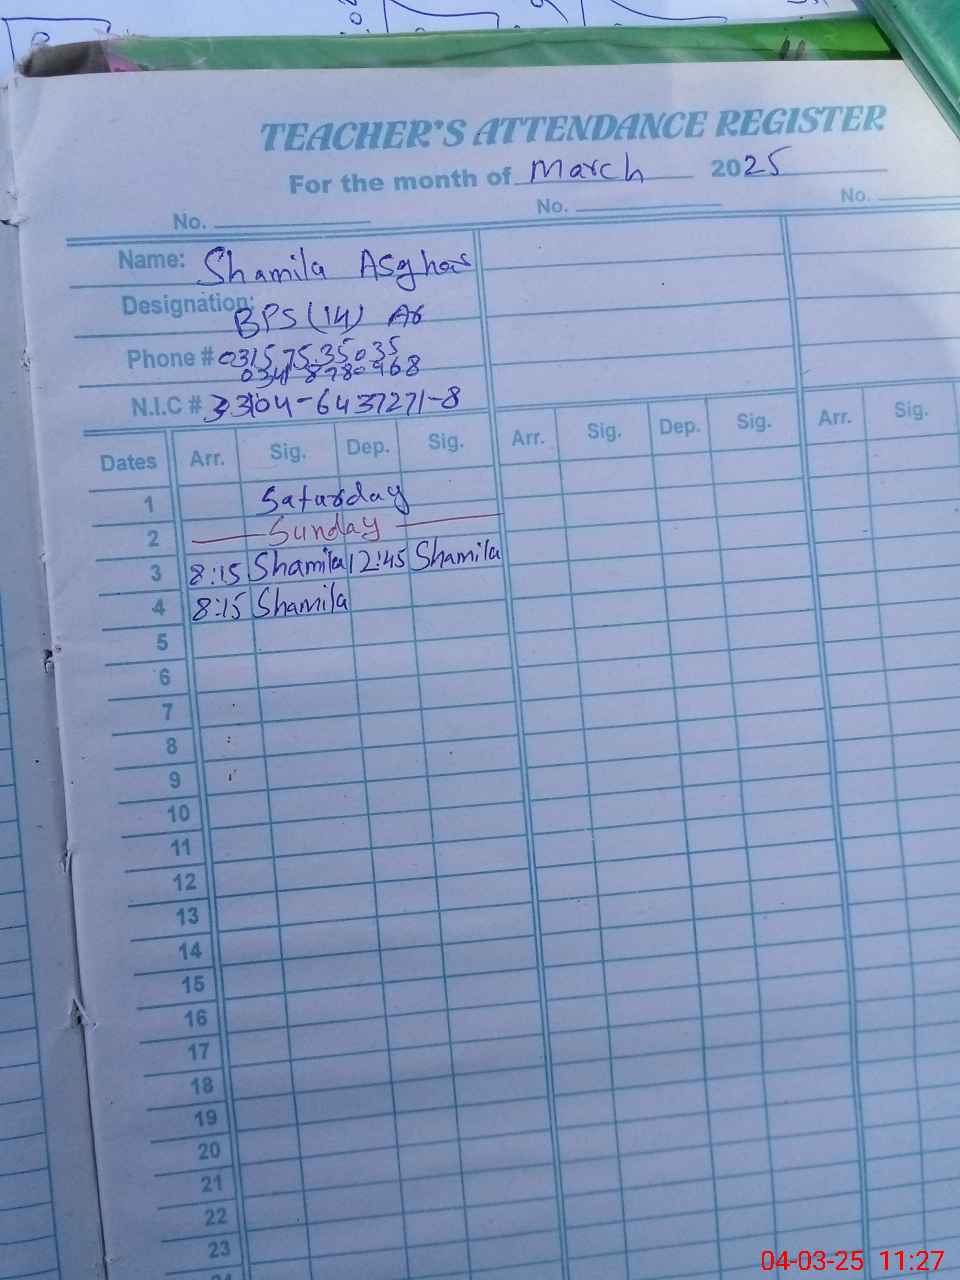 TEACHER'S ATTENDANCE REGISTER
For the month of March 2025
No. No. No.
Name: Shamila Asghar
Designation: BPS (14)
Phone # 0315 75 35 035
0341 8780968
N.I.C # 33104-6437271-8
Dates Arr. Sig. Dep. Sig. Arr. Sig. Dep. Sig. Arr. Sig.
1 Saturday
2 Sunday
3 8:15 Shamila 12:45 Shamila
4 8:15 Shamila
5
6
7
8
9
10
11
12
13
14
15
16
17
18
19
20
21
22
23
04-03-25 11:27